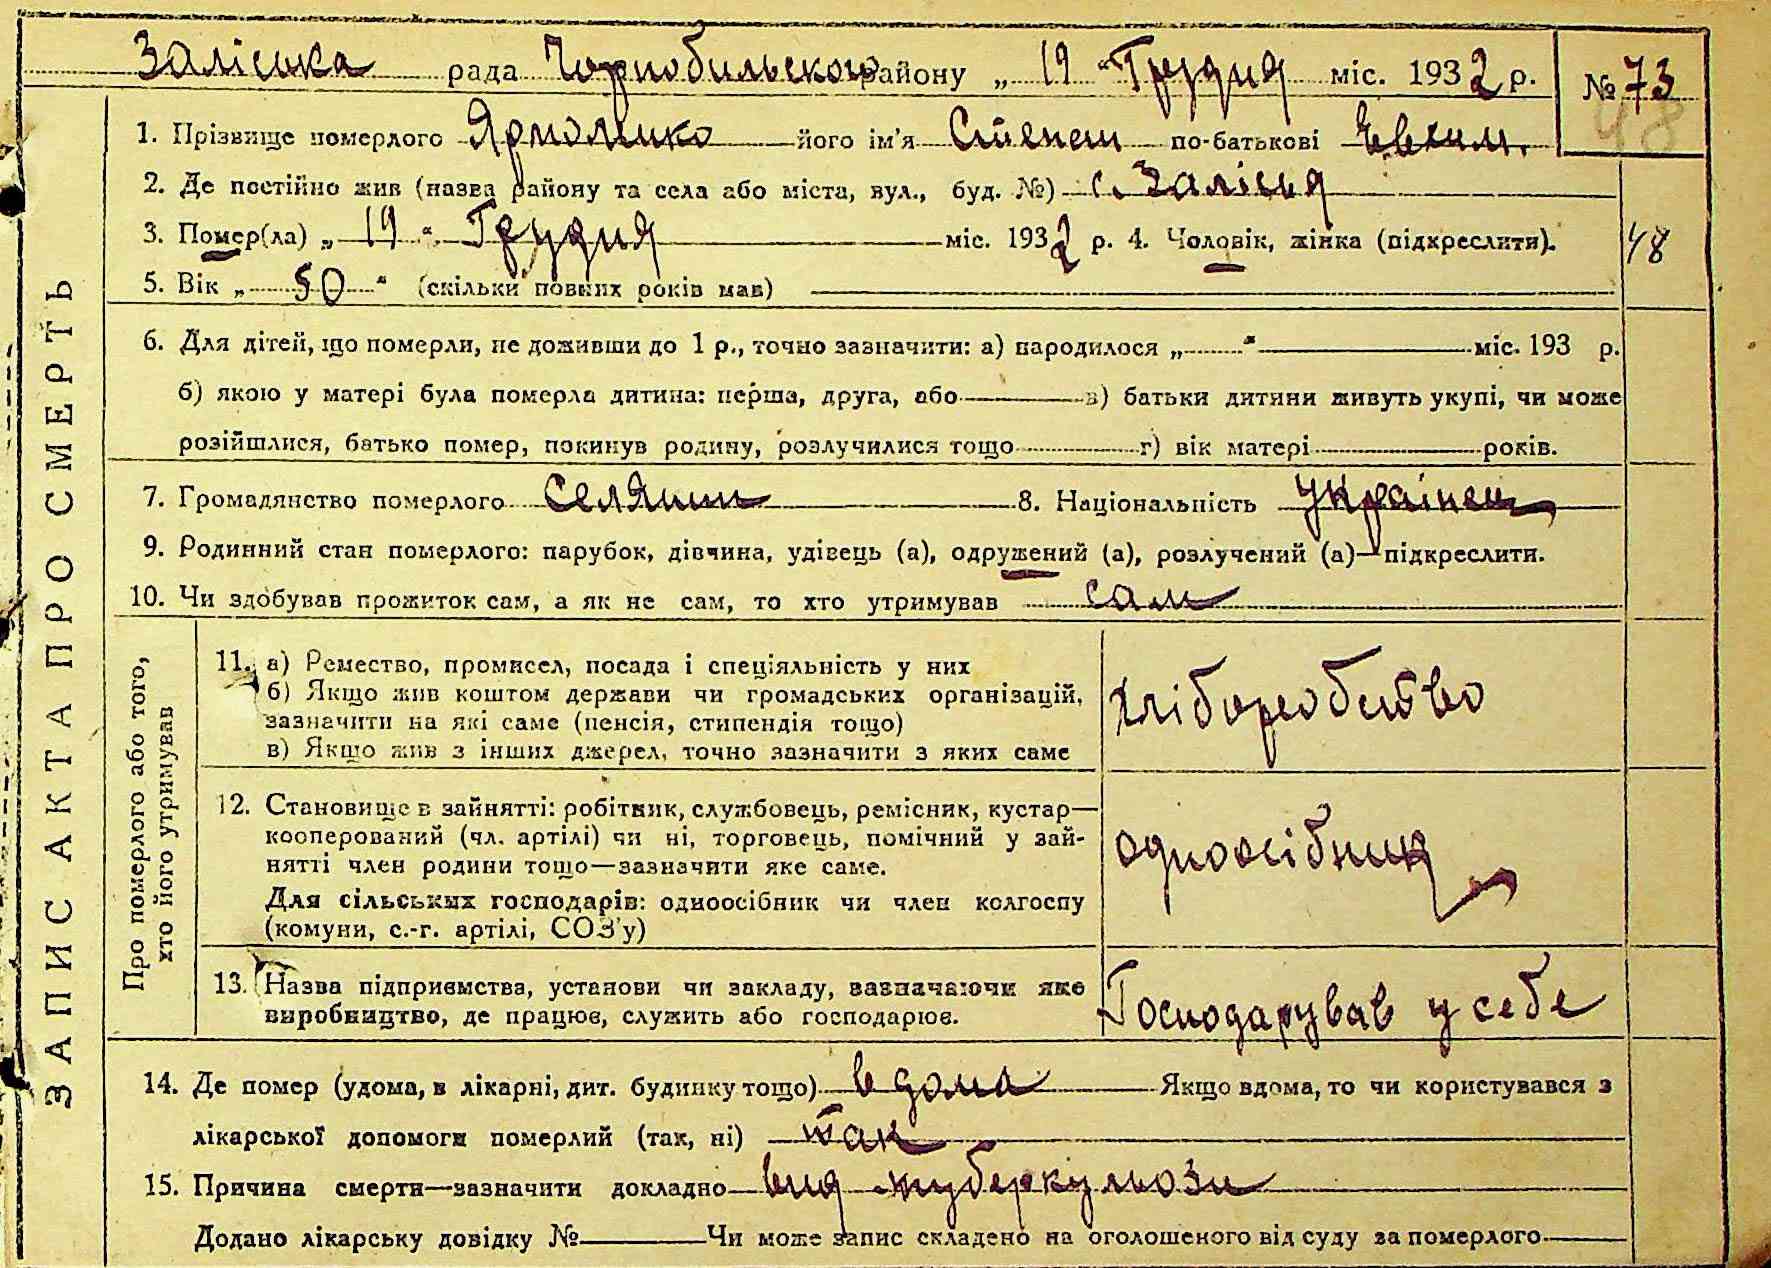 Заліська рада Чорнобильского району „19“ Грудня міс. 1932 р. № 73
48
1. Прізвище померлого Ярмоленко його ім'я Степан по-батькові Евхим.
2. Де постійно жив (назва району та села або міста, вул., буд. №) с. Залісья
3. Помер(ла) „19“ Грудня міс. 1932 р. 4. Чоловік, жінка (підкреслити). 48
5. Вік „50“ (скільки повних років мав)
6. Для дітей, що померли, не доживши до 1 р., точно зазначити: а) народилося „ “ міс. 193 р.
б) якою у матері була померла дитина: перша, друга, або в) батьки дитини живуть укупі, чи може
розійшлися, батько помер, покинув родину, розлучилися тощо г) вік матері років.
7. Громадянство померлого Селянин 8. Національність українец
9. Родинний стан померлого: парубок, дівчина, удівець (а), одружений (а), розлучений (а)—підкреслити.
10. Чи здобував прожиток сам, а як не сам, то хто утримував сам
ЗАПИС АКТА ПРО СМЕРТЬ
Про померлого або того,
хто його утримував
11. а) Ремество, промисел, посада і спеціяльність у них
б) Якщо жив коштом держави чи громадських організацій,
зазначити на які саме (пенсія, стипендія тощо)
в) Якщо жив з інших джерел, точно зазначити з яких саме
хліборобство
12. Становище в зайнятті: робітник, службовець, ремісник, кустар—
кооперований (чл. артілі) чи ні, торговець, помічний у зай-
нятті член родини тощо—зазначити яке саме.
Для сільських господарів: одноосібник чи член колгоспу
(комуни, с.-г. артілі, СОЗ'у)
одноосібник
13. Назва підприємства, установи чи закладу, зазначаючи яке
виробництво, де працює, служить або господарює.
Господарував у себе
14. Де помер (удома, в лікарні, дит. будинку тощо) вдома Якщо вдома, то чи користувався з
лікарської допомоги померлий (так, ні) так
15. Причина смерти—зазначити докладно вид туберкульози
Додано лікарську довідку № Чи може запис складено на оголошеного від суду за померлого